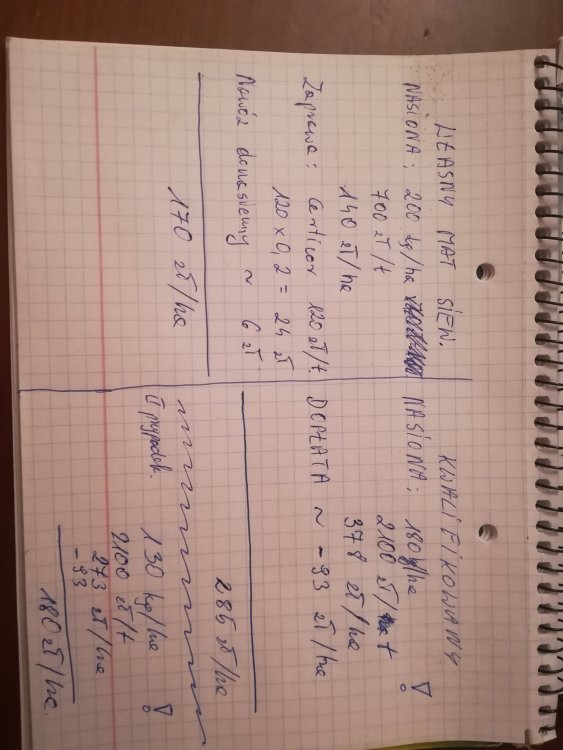 WŁASNY MAT SIEW.
NASIONA: 200 kg/ha
700 zł/t
140 zł/ha
Zaprawa: Certicor 120 zł/t
120 x 0,2 = 24 zł
Nawóz donasienny ~ 6 zł
170 zł/ha
KWALIFIKOWANY
NASIONA: 180 kg/ha !
2100 zł/t
378 zł/ha
DOPŁATA ~ -93 zł/ha
285 zł/ha
II przypadek. 130 kg/ha !
2100 zł/t
273 zł/ha
-93
180 zł/ha.